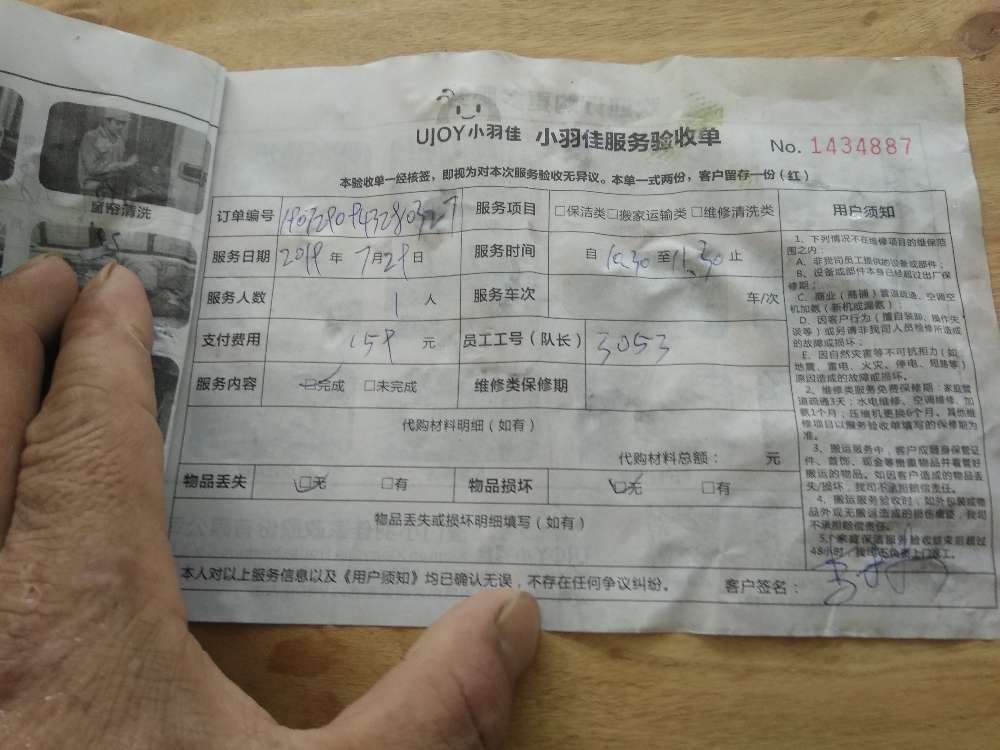 窗帘清洗
UJOY小羽佳 小羽佳服务验收单
No. 1434887
本验收单一经核签，即视为对本次服务验收无异议。本单一式两份，客户留存一份（红）
订单编号 服务项目 □保洁类□搬家运输类□维修清洗类
服务日期 2019年 7月29日 服务时间 自 10.30 至 11.30 止
服务人数 1 人 服务车次 车/次
支付费用 159 元 员工工号（队长） 3053
服务内容 □完成 □未完成 维修类保修期
代购材料明细（如有）
代购材料总额： 元
物品丢失 □无 □有 物品损坏 □无 □有
物品丢失或损坏明细填写（如有）
本人对以上服务信息以及《用户须知》均已确认无误，不存在任何争议纠纷。 客户签名：
用户须知
1、下列情况不在维修项目的维保范
围之内：
A、非我司员工提供的设备或部件；
B、设备或部件本身已经超过出厂保
修期；
C、商业（商铺）管道疏通、空调空
机加氟（新机或漏氟）
D、因客户行为（擅自装卸、操作失
误等）或另请非我司人员检修所造成
的故障或损坏；
E、因自然灾害等不可抗拒力（如
地震、雷电、火灾、停电、短路等）
原因造成的故障或损坏。
2、维修类服务免费保修期：家庭管
道疏通3天；水电维修、空调维修、加
氟1个月；压缩机更换6个月。其他维
修项目以服务验收单填写的保修期为
准。
3、搬运服务中，客户应随身保管证
件、首饰、现金等贵重物品并看管好
搬运的物品。如因客户造成的物品丢
失/损坏，我司不承担赔偿责任。
4、搬运服务验收时，如外包装或物
品外观无搬运造成的损伤痕迹，我司
不承担赔偿责任。
5、家庭保洁服务验收结束后超过
48小时，我司不负责上门返工。